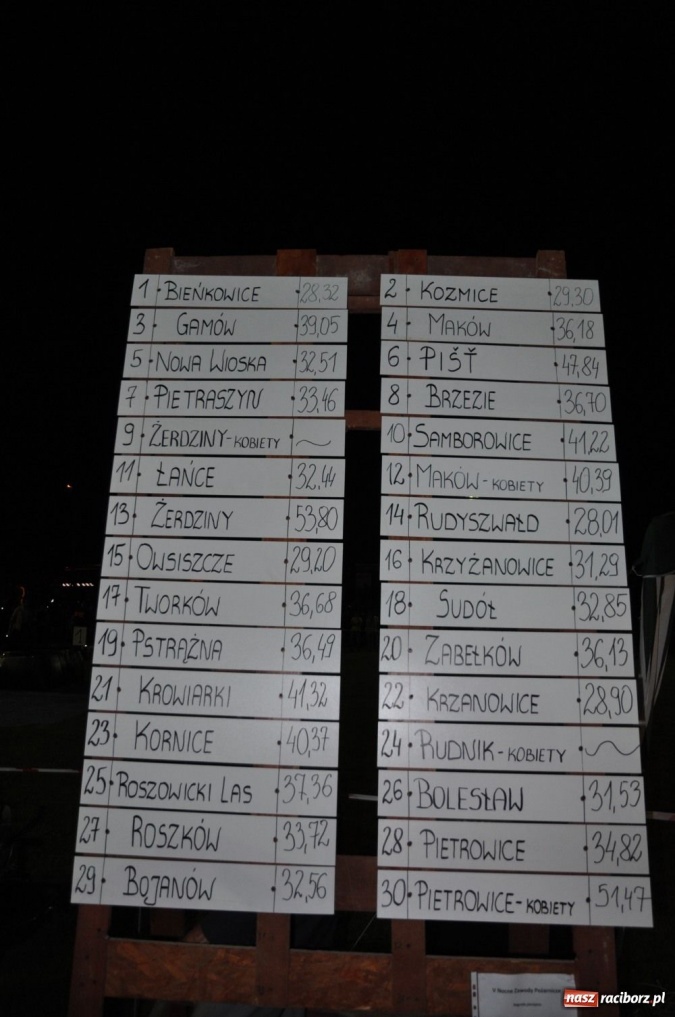 1 BIEŃKOWICE 28,32
2 KOZMICE 29,30
3 GAMÓW 39,05
4 MAKÓW 36,18
5 NOWA WIOSKA 32,51
6 PIŠŤ 47,84
7 PIETRASZYN 33,46
8 BRZEZIE 36,70
9 ŻERDZINY-KOBIETY ~
10 SAMBOROWICE 41,22
11 ŁAŃCE 32,44
12 MAKÓW-KOBIETY 40,39
13 ŻERDZINY 53,80
14 RUDYSZWAŁD 28,01
15 OWSISZCZE 29,20
16 KRZYŻANOWICE 31,29
17 TWORKÓW 36,68
18 SUDÓŁ 32,85
19 PSTRĄŻNA 36,49
20 ZABEŁKÓW 36,13
21 KROWIARKI 41,32
22 KRZANOWICE 28,90
23 KORNICE 40,37
24 RUDNIK-KOBIETY ~
25 ROSZOWICKI LAS 37,36
26 BOLESŁAW 31,53
27 ROSZKÓW 33,72
28 PIETROWICE 34,82
29 BOJANÓW 32,56
30 PIETROWICE-KOBIETY 51,47
V Nocne Zawody
nasz raciborz.pl